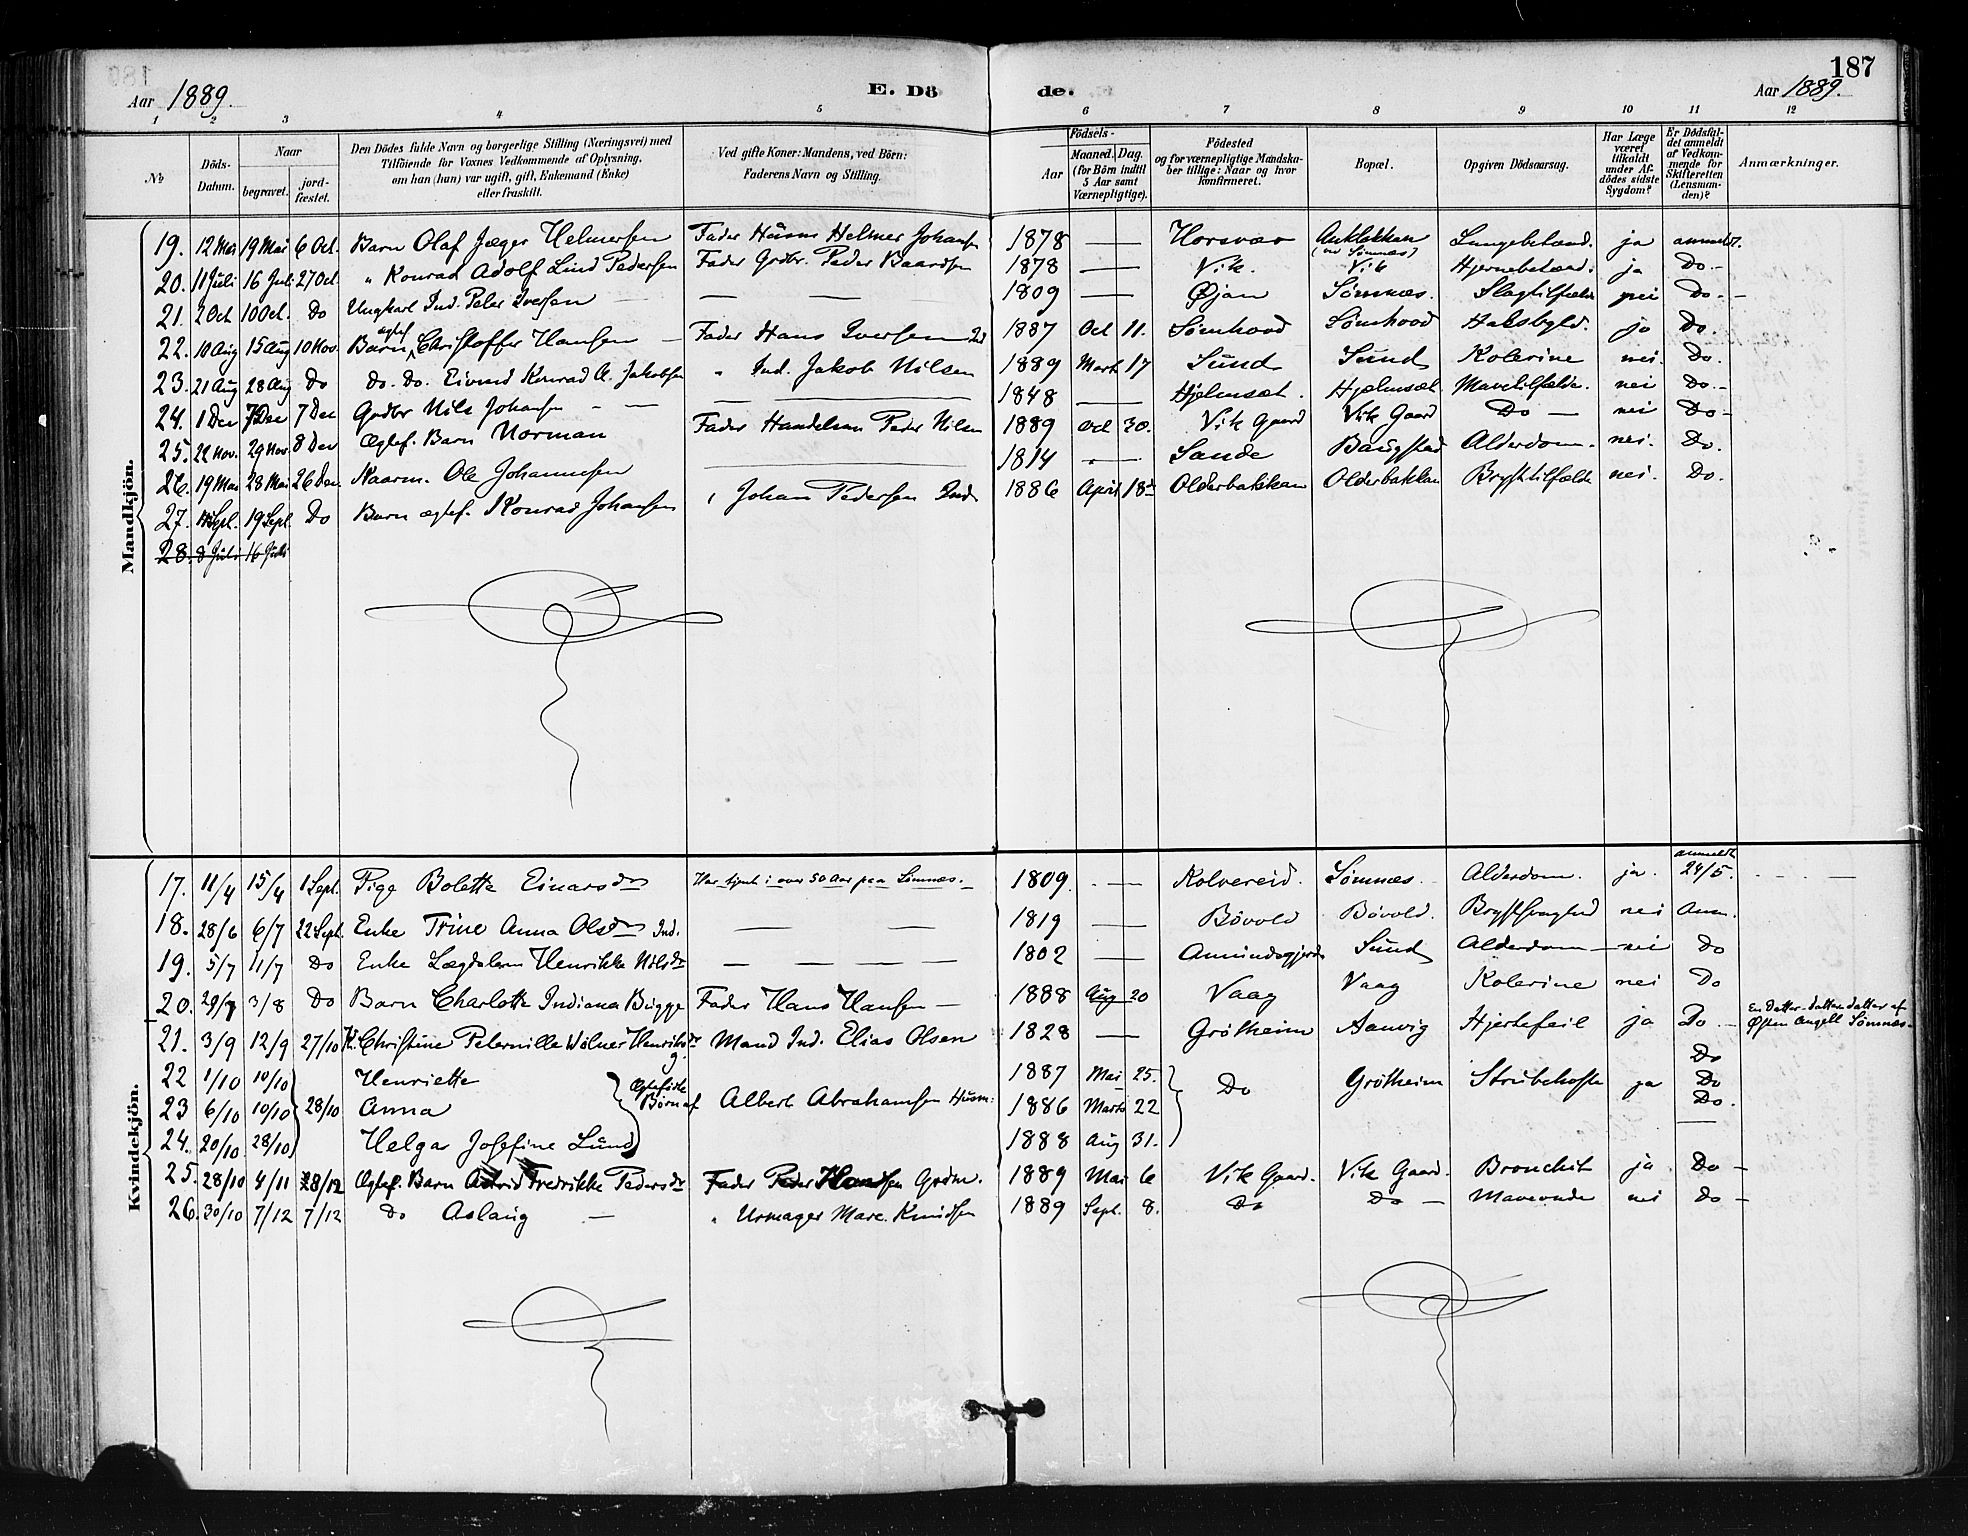 187
Aar 1889. E. Dö de. Aar 1889.
1 2 3 4 5 6 7 8 9 10 11 12
№ Döds-Datum. Naar begravet. jord-fæstet. Den Dödes fulde Navn og borgerlige Stilling (Næringsvei) med Tilföiende for Voxnes Vedkommende af Oplysning, om han (hun) var ugift, gift, Enkemand (Enke) eller fraskilt. Ved gifte Koner: Mandens, ved Börn: Faderens Navn og Stilling. Födsels- Aar Maaned. Dag. (for Börn indtil 5 Aar samt Værnepligtige). Födested og for værnepligtige Mandskaber tillige: Naar og hvor konfirmeret. Bopæl. Opgiven Dödsaarsag. Har Læge været tilkaldt under Afdödes sidste Sygdom? Er Dödsfaldet anmeldt af Vedkommende for Skifteretten (Lensmanden)? Anmærkninger.
Mandkjön.
19. 12 Mai 19 Mai 6 Oct. Barn Olaf Jæger Helmersen Fader Husm Helmer Johansen 1878 — Horsvær (ved Sømnes) Lungebetænd. ja anmeldt.
20. 11 Juli 16 Juli 27 Oct. " Konrad Adolf Lind Pedersen Fader Grdbr. Peder Baardsen 1878 — Vik. Vik Hjernebetænd. ja Do.-
21. 2 Oct 10 Oct. Do Ungkarl Ind. Peter Iversen — — 1809 — Øjan Sømnes. Slagtilfælde nei Do. -
22. 10 Aug 15 Aug 10 Nov. Barn ægtef Christoffer Hansen - Fader Hans Iversen 1887 Oct 11. Sømhovd Sømhovd Halsbyld. ja Do.
23. 21 Aug 28 Aug Do Do. Do. Eivind Konrad A. Jakobsen " Ind. Jakob Nilsen 1889 Marts 17 Sund Sund Kolerine nei. Do.
24. 1 Dec 7 Dec 7 Dec Grdbr Nils Johansen — 1848 — Hjelmsæt. Hjelmsæt. Mavetilfælde. nei Do.-
25. 22 Nov. 29 Nov. 8 Dec Ægtef. Barn Norman Fader Handelsm Peder Nilsen 1889 Oct 30. Vik Gaard Vik Gaard Do — nei Do-
26. 19 Mai 28 Mai 26 Dec. Kaarm. Ole Johannesen — 1814 — Sande Baugstad Alderdom. nei. Do.
27. Sept. 19 Sept. Do Barn ægtef. Konrad Johansen " Johan Pedersen Ind. 1886 April 18de Olderbakkan Olderbakkan Brysttilfælde nei. Do.
28. 8 Juli 16 Juli
Kvindekjön.
17. 11/4 15/4 1 Sept. Pige Bolette Einarsdr Har tjent i over 50 Aar paa Sømnes. 1809. — Kolvereid. Sømnes. Alderdom. ja. anmeldt 24/5. —
18. 28/6 6/7 22 Sept. Enke Trine Anna Olsdr Ind. — — 1819 — Bøvold Bøvold. Brystsvaghed nei Anm.
19. 5/7 11/7 Do Enke Lægdslem Henrikke Nilsdr — — 1802 — Amundsgjerd Sund Alderdom — nei Do
20. 29/7 3/8 Do Barn Charlotte Indiana Bugge Fader Hans Hansen — 1888 Aug 20 Vaag Vaag Kolerine nei Do
21. 3/9 12/9 27/10 K. Christine Peternille Wølner Henriksdr Mand Ind. Elias Olsen 1828 — Grøtheim Aanvig Hjertefeil ja Do - En Datter-datters datter af Østen Angell Sømnes-
22 1/10 10/10 Henriette 1887 Mai 25. Do
23 6/10 10/10 28/10 Anna Ægtefødte Børn af Albert Abrahamsen Husm: 1886 Marts 22 Do Grøtheim Strubehoste ja Do Do.
24. 20/10 28/10 Helga Josefine Lund 1888 Aug 31. —
25. 28/10 4/11 28/12 Ægtef. Barn Astrid Fredrikke Pedersdr Fader Peder Hansen Grdm. 1889 Mai 6 Vik Gaard. Vik Gaard. Bronchit ja Do -
26. 30/10 7/12 7/12 Do Aslaug — " Urmager Marc. Knudsen 1889 Sept. 8. Do Do — Maveonde nei Do -